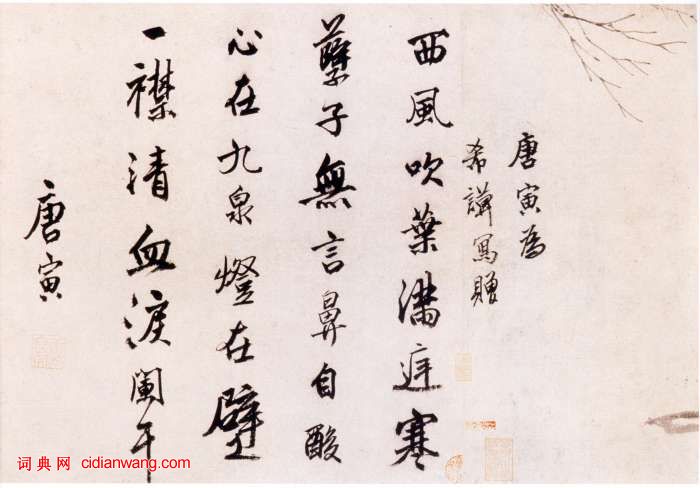 唐寅為
希謨寫贈
西風吹葉滿庭寒
孽子無言鼻自酸
心在九泉燈在壁
一襟清血淚闌干
唐寅
词典网 cidianwang.com